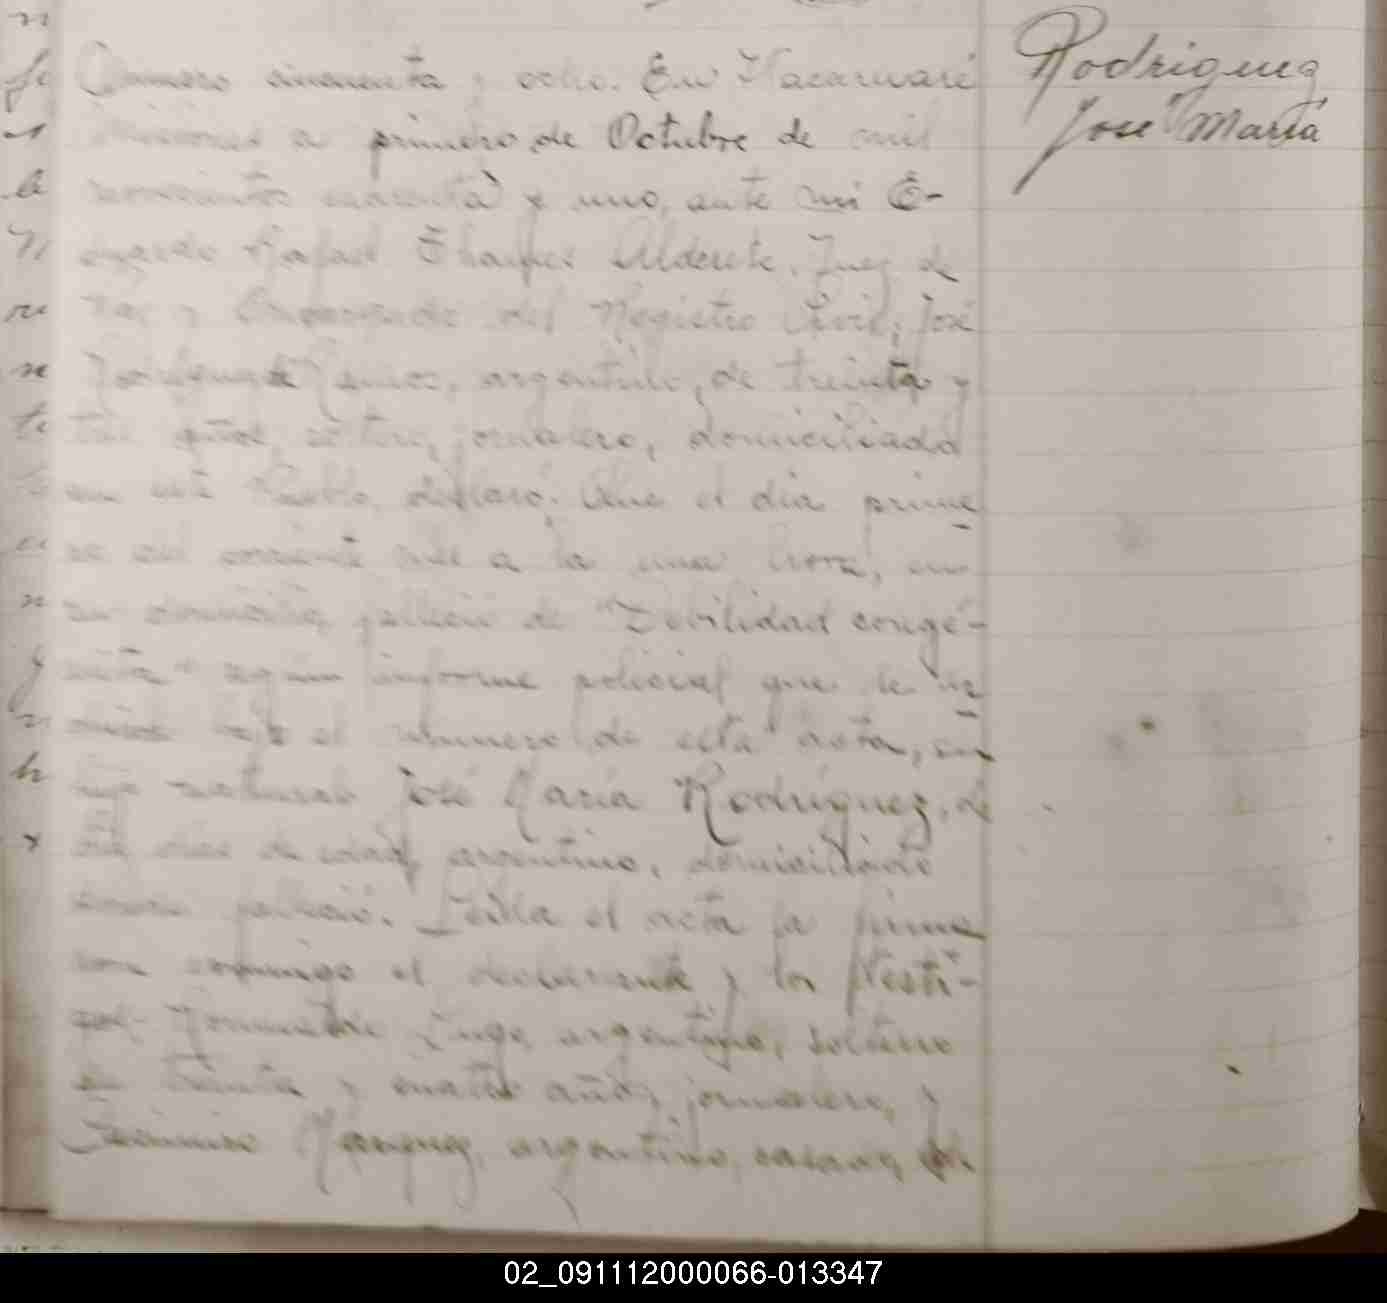 Rodriguez
José María
Número cincuenta y ocho. En
Misiones a primero de Octubre de mil
novecientos cuarenta y uno, ante mi E-
Rafael Alderete, Juez de
Paz y Encargado del Registro Civil, José
argentino, de treinta y
tres años, soltero, jornalero, domiciliado
en este Pueblo, declaró: Que el día prime
ro del corriente mes a la una hora, en
su domicilio, falleció de "Debilidad congé-
nita" según informe policial que se ar
chiva bajo el número de esta acta, su
hijo natural José María Rodríguez, de
días de edad, argentino, domiciliado
donde falleció. Leída el acta la firma
con conmigo el declarante y los testi-
gos: Lugo, argentino, soltero
de treinta y cuatro años, jornalero, y
argentino, casado, de
02_091112000066-013347